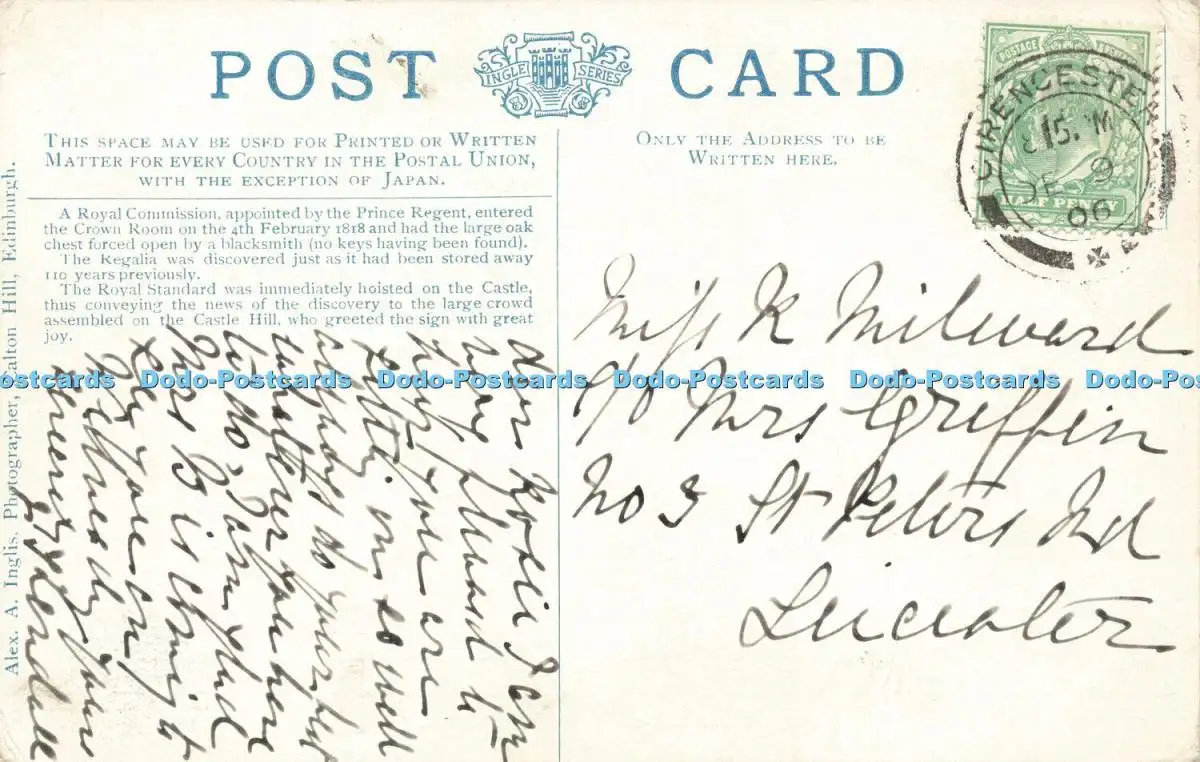 POST CARD
INGLE SERIES
THIS SPACE MAY BE USED FOR PRINTED OR WRITTEN
MATTER FOR EVERY COUNTRY IN THE POSTAL UNION,
WITH THE EXCEPTION OF JAPAN.
ONLY THE ADDRESS TO BE
WRITTEN HERE.
A Royal Commission, appointed by the Prince Regent, entered
the Crown Room on the 4th February 1818 and had the large oak
chest forced open by a blacksmith (no keys having been found).
The Regalia was discovered just as it had been stored away
110 years previously.
The Royal Standard was immediately hoisted on the Castle,
thus conveying the news of the discovery to the large crowd
assembled on the Castle Hill, who greeted the sign with great
joy.
Alex. A. Inglis, Photographer, Calton Hill, Edinburgh.
POSTAGE
HALF PENNY
CIRENCESTER
DE 9
06
Miss K Milward
c/o Mrs Griffin
No 3 St Peters Rd
Leicester
Dear I am
very pleased to
hear you are
so well
always do your best
whatever you have
to do, I am glad
Miss B is coming to
see you on
Wednesday yours
sincerely
Dodo-Postcards Dodo-Postcards Dodo-Postcards Dodo-Postcards Dodo-Postcards Dodo-Postcards